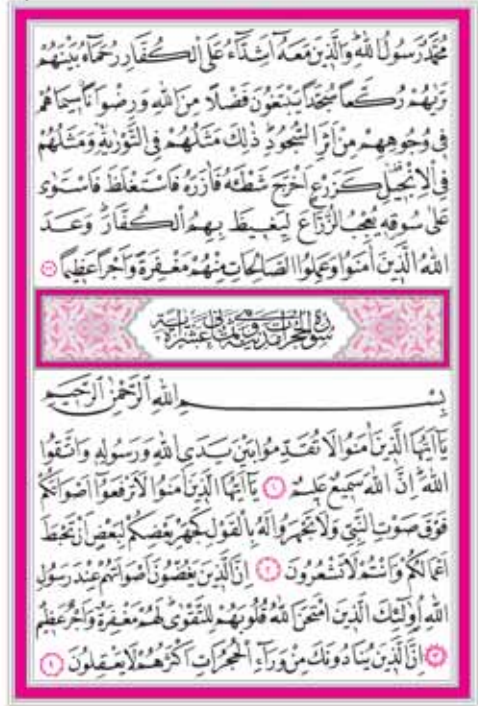 مُحَمَّدٌ رَسُولُ اللّٰهِ وَالَّذِينَ مَعَهُٓ اَشِدَّٓاءُ عَلَى الْكُفَّارِ رُحَمَٓاءُ بَيْنَهُمْ
تَرٰيهُمْ رُكَّعًا سُجَّدًا يَبْتَغُونَ فَضْلًا مِنَ اللّٰهِ وَرِضْوَانًا سِيمَاهُمْ
فِى وُجُوهِهِمْ مِنْ اَثَرِ السُّجُودِ ذٰلِكَ مَثَلُهُمْ فِى التَّوْرٰيةِ وَمَثَلُهُمْ
فِى الْاِنْجِيلِ كَزَرْعٍ اَخْرَجَ شَطْـَٔهُ فَاٰزَرَهُ فَاسْتَغْلَظَ فَاسْتَوٰى
عَلٰى سُوقِهِ يُعْجِبُ الزُّرَّاعَ لِيَغِيظَ بِهِمُ الْكُفَّارَ وَعَدَ
اللّٰهُ الَّذِينَ اٰمَنُوا وَعَمِلُوا الصَّالِحَاتِ مِنْهُمْ مَغْفِرَةً وَاَجْرًا عَظِيمًا ٢٩
سورة الحجرات مدنية وهي ثماني عشرة اية
بِسْمِ اللّٰهِ الرَّحْمٰنِ الرَّحِيمِ
يَٓا اَيُّهَا الَّذِينَ اٰمَنُوا لَا تُقَدِّمُوا بَيْنَ يَدَىِ اللّٰهِ وَرَسُولِهِ وَاتَّقُوا
اللّٰهَ اِنَّ اللّٰهَ سَمِيعٌ عَلِيمٌ ١ يَٓا اَيُّهَا الَّذِينَ اٰمَنُوا لَا تَرْفَعُٓوا اَصْوَاتَكُمْ
فَوْقَ صَوْتِ النَّبِىِّ وَلَا تَجْهَرُوا لَهُ بِالْقَوْلِ كَجَهْرِ بَعْضِكُمْ لِبَعْضٍ اَنْ تَحْبَطَ
اَعْمَالُكُمْ وَاَنْتُمْ لَا تَشْعُرُونَ ٢ اِنَّ الَّذِينَ يَغُضُّونَ اَصْوَاتَهُمْ عِنْدَ رَسُولِ
اللّٰهِ اُو۬لٰٓئِكَ الَّذِينَ امْتَحَنَ اللّٰهُ قُلُوبَهُمْ لِلتَّقْوٰى لَهُمْ مَغْفِرَةٌ وَاَجْرٌ عَظِيمٌ
٣ اِنَّ الَّذِينَ يُنَادُونَكَ مِنْ وَرَٓاءِ الْحُجُرَاتِ اَكْثَرُهُمْ لَا يَعْقِلُونَ ٤